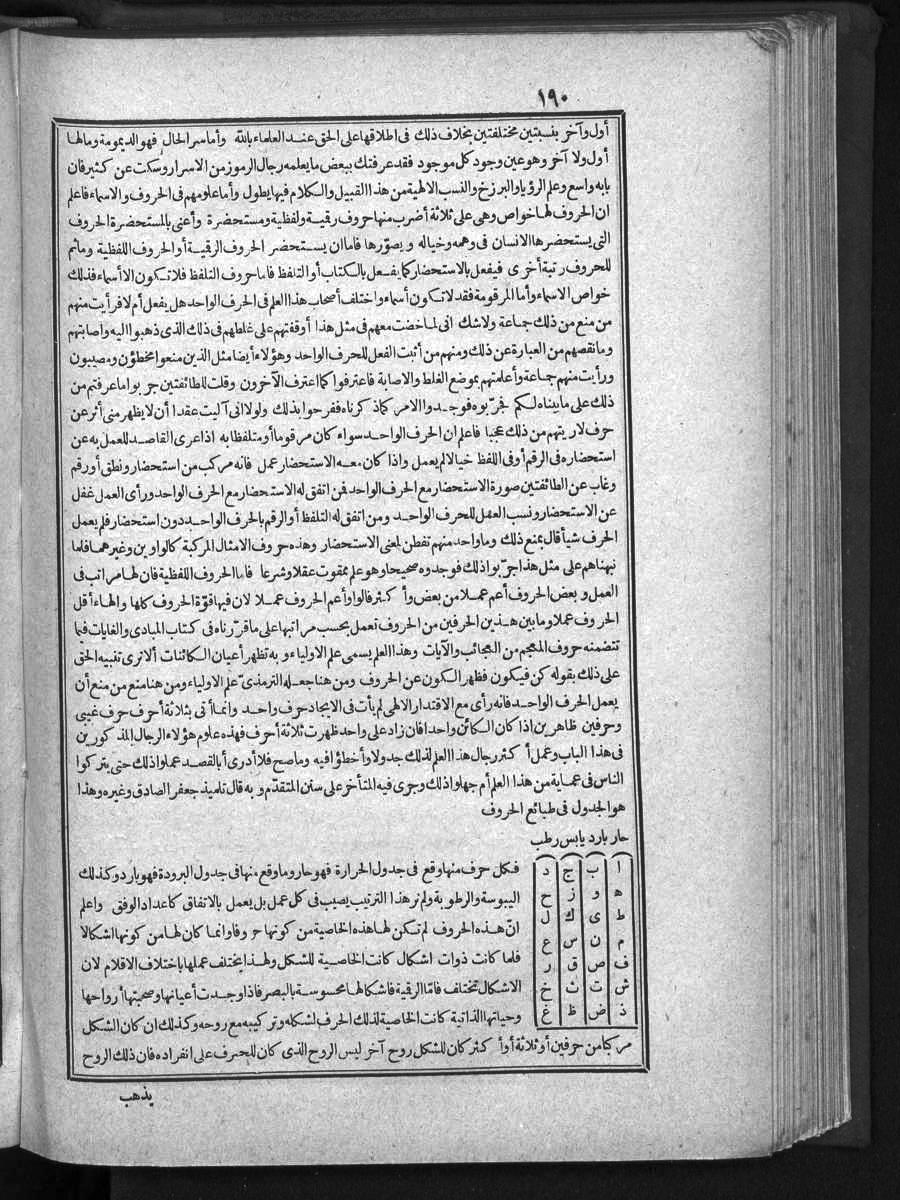 ١٩٠
أول وآخر بنسبتين مختلفتين بخلاف ذلك فى اطلاقها على الحق عند العلماء بالله وأما سر الحال فهو الديمومة ومالها
أول ولا آخر وهو عين وجود كل موجود فقد عرفتك ببعض ما يعلمه رجال الرموز من الاسرار وسكت عن كثير فان
بابه واسع وعلم الرؤيا والبرزخ والنسب الالهية من هذا القبيل والكلام فيها يطول وأما علومهم فى الحروف والاسماء فاعلم
ان الحروف لها خواص وهى على ثلاثة أضرب منها حروف رقمية ولفظية ومستحضرة وأعنى بالمستحضرة الحروف
التى يستحضرها الانسان فى وهمه وخياله ويصوّرها فاما ان يستحضر الحروف الرقمية أو الحروف اللفظية وماثم
للحروف رتبة أخرى فيفعل بالاستحضار كما يفعل بالكتاب أو التلفظ فاما حروف التلفظ فلا تكون الا أسماء فذلك
خواص الاسماء وأما المرقومة فقد لا تكون أسماء واختلف أصحاب هذا العلم فى الحرف الواحد هل يفعل أم لا فرأيت منهم
من منع من ذلك جماعة ولاشك انى لما خضت معهم فى مثل هذا أوقفتهم على غلطهم فى ذلك الذى ذهبوا اليه واصابتهم
وما نقصهم من العبارة عن ذلك ومنهم من أثبت الفعل للحرف الواحد وهؤلاء أيضا مثل الذين منعوا مخطؤن ومصيبون
ورأيت منهم جماعة وأعلمتهم بموضع الغلط والاصابة فاعترفوا كما اعترف الآخرون وقلت للطائفتين جربوا ما عرفتم من
ذلك على ما بيناه لكم فجرّبوه فوجدوا الامر كما ذكرناه ففرحوا بذلك ولولا انى آليت عقدا أن لا يظهر منى أثر عن
حرف لاريتهم من ذلك عجبا فاعلم ان الحرف الواحد سواء كان مرقوما أو متلفظا به اذا عرى القاصد للعمل به عن
استحضاره فى الرقم أو فى اللفظ خيالا لم يعمل واذا كان معه الاستحضار عمل فانه مركب من استحضار ونطق أو رقم
وغاب عن الطائفتين صورة الاستحضار مع الحرف الواحد فمن اتفق له الاستحضار مع الحرف الواحد ورأى العمل غفل
عن الاستحضار ونسب العمل للحرف الواحد ومن اتفق له التلفظ أو الرقم بالحرف الواحد دون استحضار فلم يعمل
الحرف شيأ قال بمنع ذلك وما واحد منهم تفطن لمعنى الاستحضار وهذه حروف الامثال المركبة كالواوين وغيرهما فلما
نبهناهم على مثل هذا جربوا ذلك فوجدوه صحيحا وهو علم ممقوت عقلا وشرعا فاما الحروف اللفظية فان لها مراتب فى
العمل وبعض الحروف أعم عملا من بعض وأكثر فالواو أعم الحروف عملا لان فيها قوّة الحروف كلها والهاء أقل
الحروف عملا وما بين هذين الحرفين من الحروف تعمل بحسب مراتبها على ما قرّرناه فى كتاب المبادى والغايات فيما
تتضمنه حروف المعجم من العجائب والآيات وهذا العلم يسمى علم الاولياء وبه تظهر أعيان الكائنات ألا ترى تنبيه الحق
على ذلك بقوله كن فيكون فظهر الكون عن الحروف ومن هنا جعله الترمذىّ علم الاولياء ومن هنا منع من منع أن
يعمل الحرف الواحد فانه رأى مع الاقتدار الالهى لم يأت فى الايجاد حرف واحد وانما أتى بثلاثة أحرف حرف غيبى
وحرفين ظاهرين اذا كان الكائن واحدا فان زاد على واحد ظهرت ثلاثة أحرف فهذه علوم هؤلاء الرجال المذكورين
فى هذا الباب وعمل أكثر رجال هذا العلم لذلك جدولا وأخطؤا فيه وما صح فلا أدرى أبالقصد عملوا ذلك حتى يتركوا
الناس فى عماية من هذا العلم أم جهلوا ذلك وجرى فيه المتأخر على سنن المتقدّم وبه قال تلميذ جعفر الصادق وغيره وهذا
هو الجدول فى طبائع الحروف
حار بارد يابس رطب
ا ب ج د
ه و ز ح
ط ى ك ل
م ن س ع
ف ص ق ر
ش ت ث خ
ذ ض ظ غ
فكل حرف منها وقع فى جدول الحرارة فهو حار وما وقع منها فى جدول البرودة فهو بارد وكذلك
اليبوسة والرطوبة ولم نر هذا الترتيب يصيب فى كل عمل بل يعمل بالاتفاق كاعداد الوفق واعلم
انّ هذه الحروف لم تكن لها هذه الخاصية من كونها حروفا وانما كان لها من كونها اشكالا
فلما كانت ذوات اشكال كانت الخاصية للشكل ولهذا يختلف عملها باختلاف الاقلام لان
الاشكال تختلف فاما الرقمية فاشكالها محسوسة بالبصر فاذا وجدت أعيانها وصحبتها أرواحها
وحياتها الذاتية كانت الخاصية لذلك الحرف لشكله وتركيبه مع روحه وكذلك ان كان الشكل
مركبا من حرفين أو ثلاثة أو أكثر كان للشكل روح آخر ليس الروح الذى كان للحرف على انفراده فان ذلك الروح
يذهب